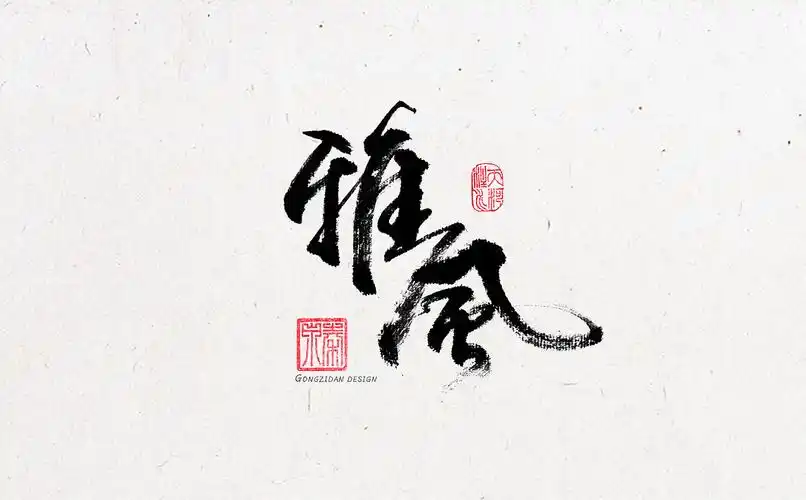 雅
風
GONGZIDAN DESIGN